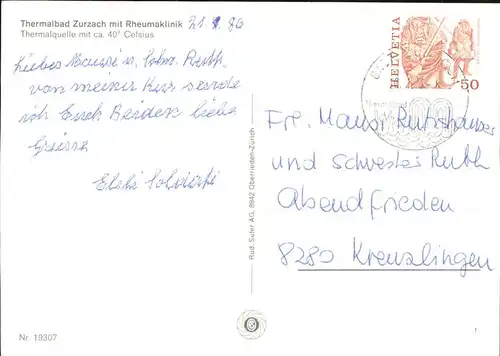 Thermalbad Zurzach mit Rheumaklinik
Thermalquelle mit ca. 40° Celsius
Liebes Mausi u. Schw. Ruth
von meiner Kur sende
ich Euch Beiden liebe
Grüsse
HELVETIA
50
Frl. Mausi Rutishauser
und Schwester Ruth
Abendfrieden
8280 Kreuzlingen
Rud. Suter AG, 8942 Oberrieden-Zürich
Nr. 19307